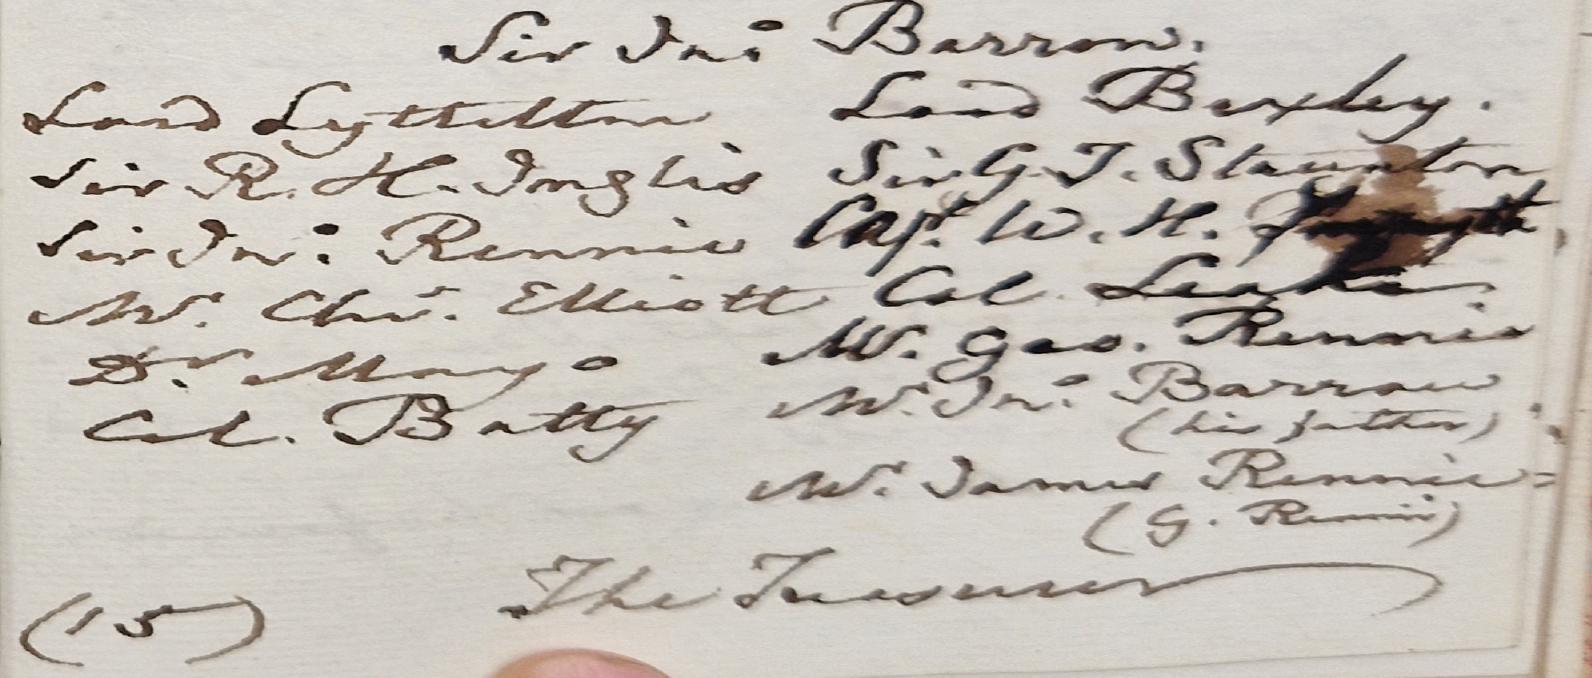 Sir Jno. Barrow.
Lord Lyttelton
Lord Bexley.
Sir R. H. Inglis
Sir G. T. Staunton
Sir Jno. Rennie
Capt. W. H.
Mr. Chr. Elliott
Col. Leake.
Dr. Mayo
Mr. Geo. Rennie
Col. Batty
Mr. Jno. Barrow
(his father)
Mr. James Rennie
(G. Rennie)
The Treasurer
(15)